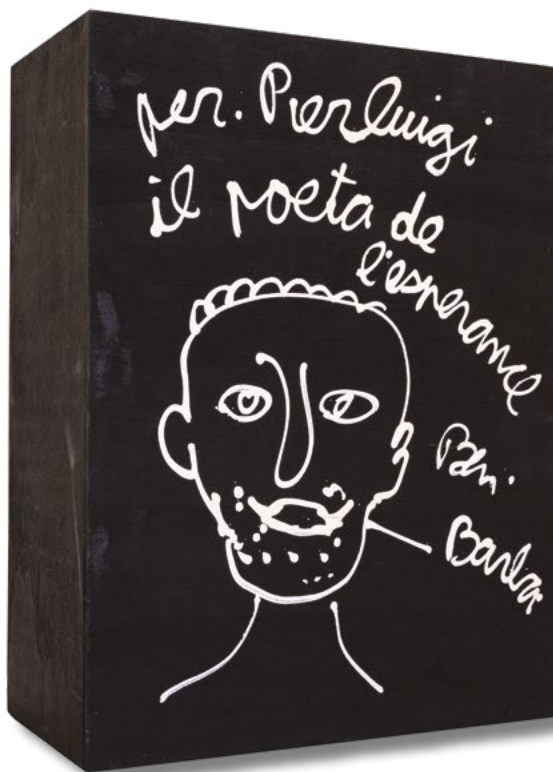 per. Pierluigi
il poeta de
l'esperance
Barbar